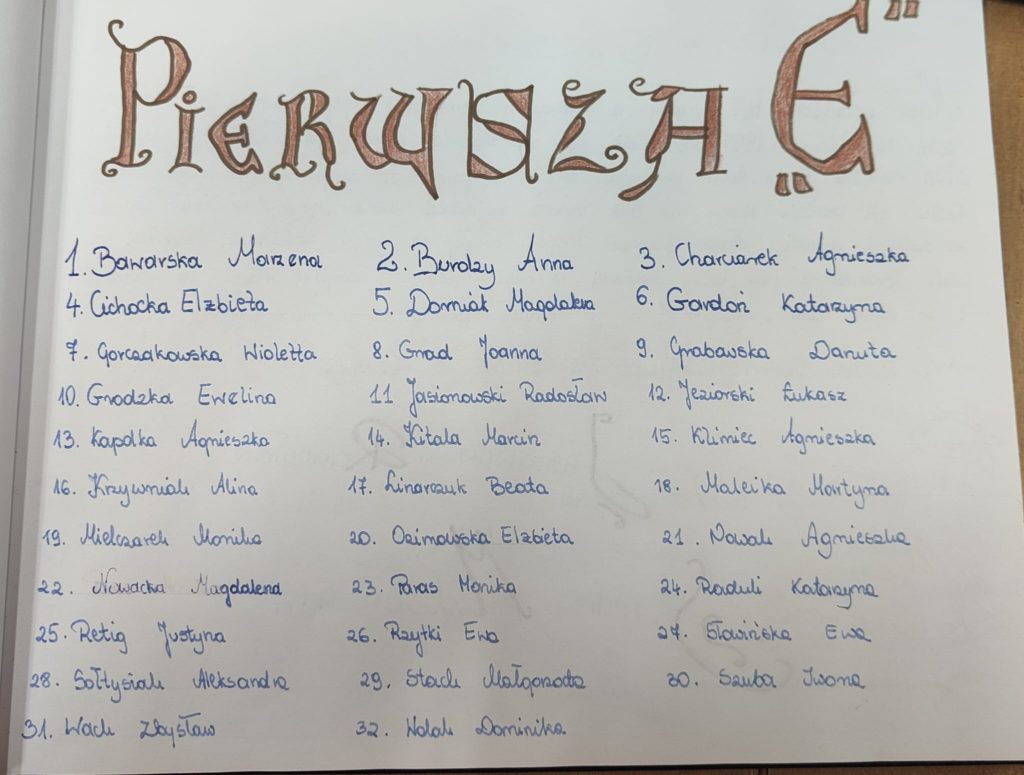 Pierwsza "E"
1. Bawarska Marzena 2. Burdzy Anna 3. Charciarek Agnieszka
4. Cichocka Elżbieta 5. Domiak Magdalena 6. Gardoń Katarzyna
7. Gorczakowska Wioletta 8. Grad Joanna 9. Grabowska Danuta
10. Grodzka Ewelina 11 Jasionowski Radosław 12. Jeziorski Łukasz
13. Kapałka Agnieszka 14. Kitala Marcin 15. Klimiec Agnieszka
16. Krzywniak Alina 17. Linarczuk Beata 18. Malcika Martyna
19. Mielczarek Monika 20. Ozimowska Elżbieta 21. Nowak Agnieszka
22. Nowacka Magdalena 23. Paras Monika 24. Raduli Katarzyna
25. Retig Justyna 26. Rzytki Ewa 27. Sławińska Ewa
28. Sołtysiak Aleksandra 29. Stach Małgorzata 30. Szuba Iwona
31. Wach Zbysław 32. Walak Dominika